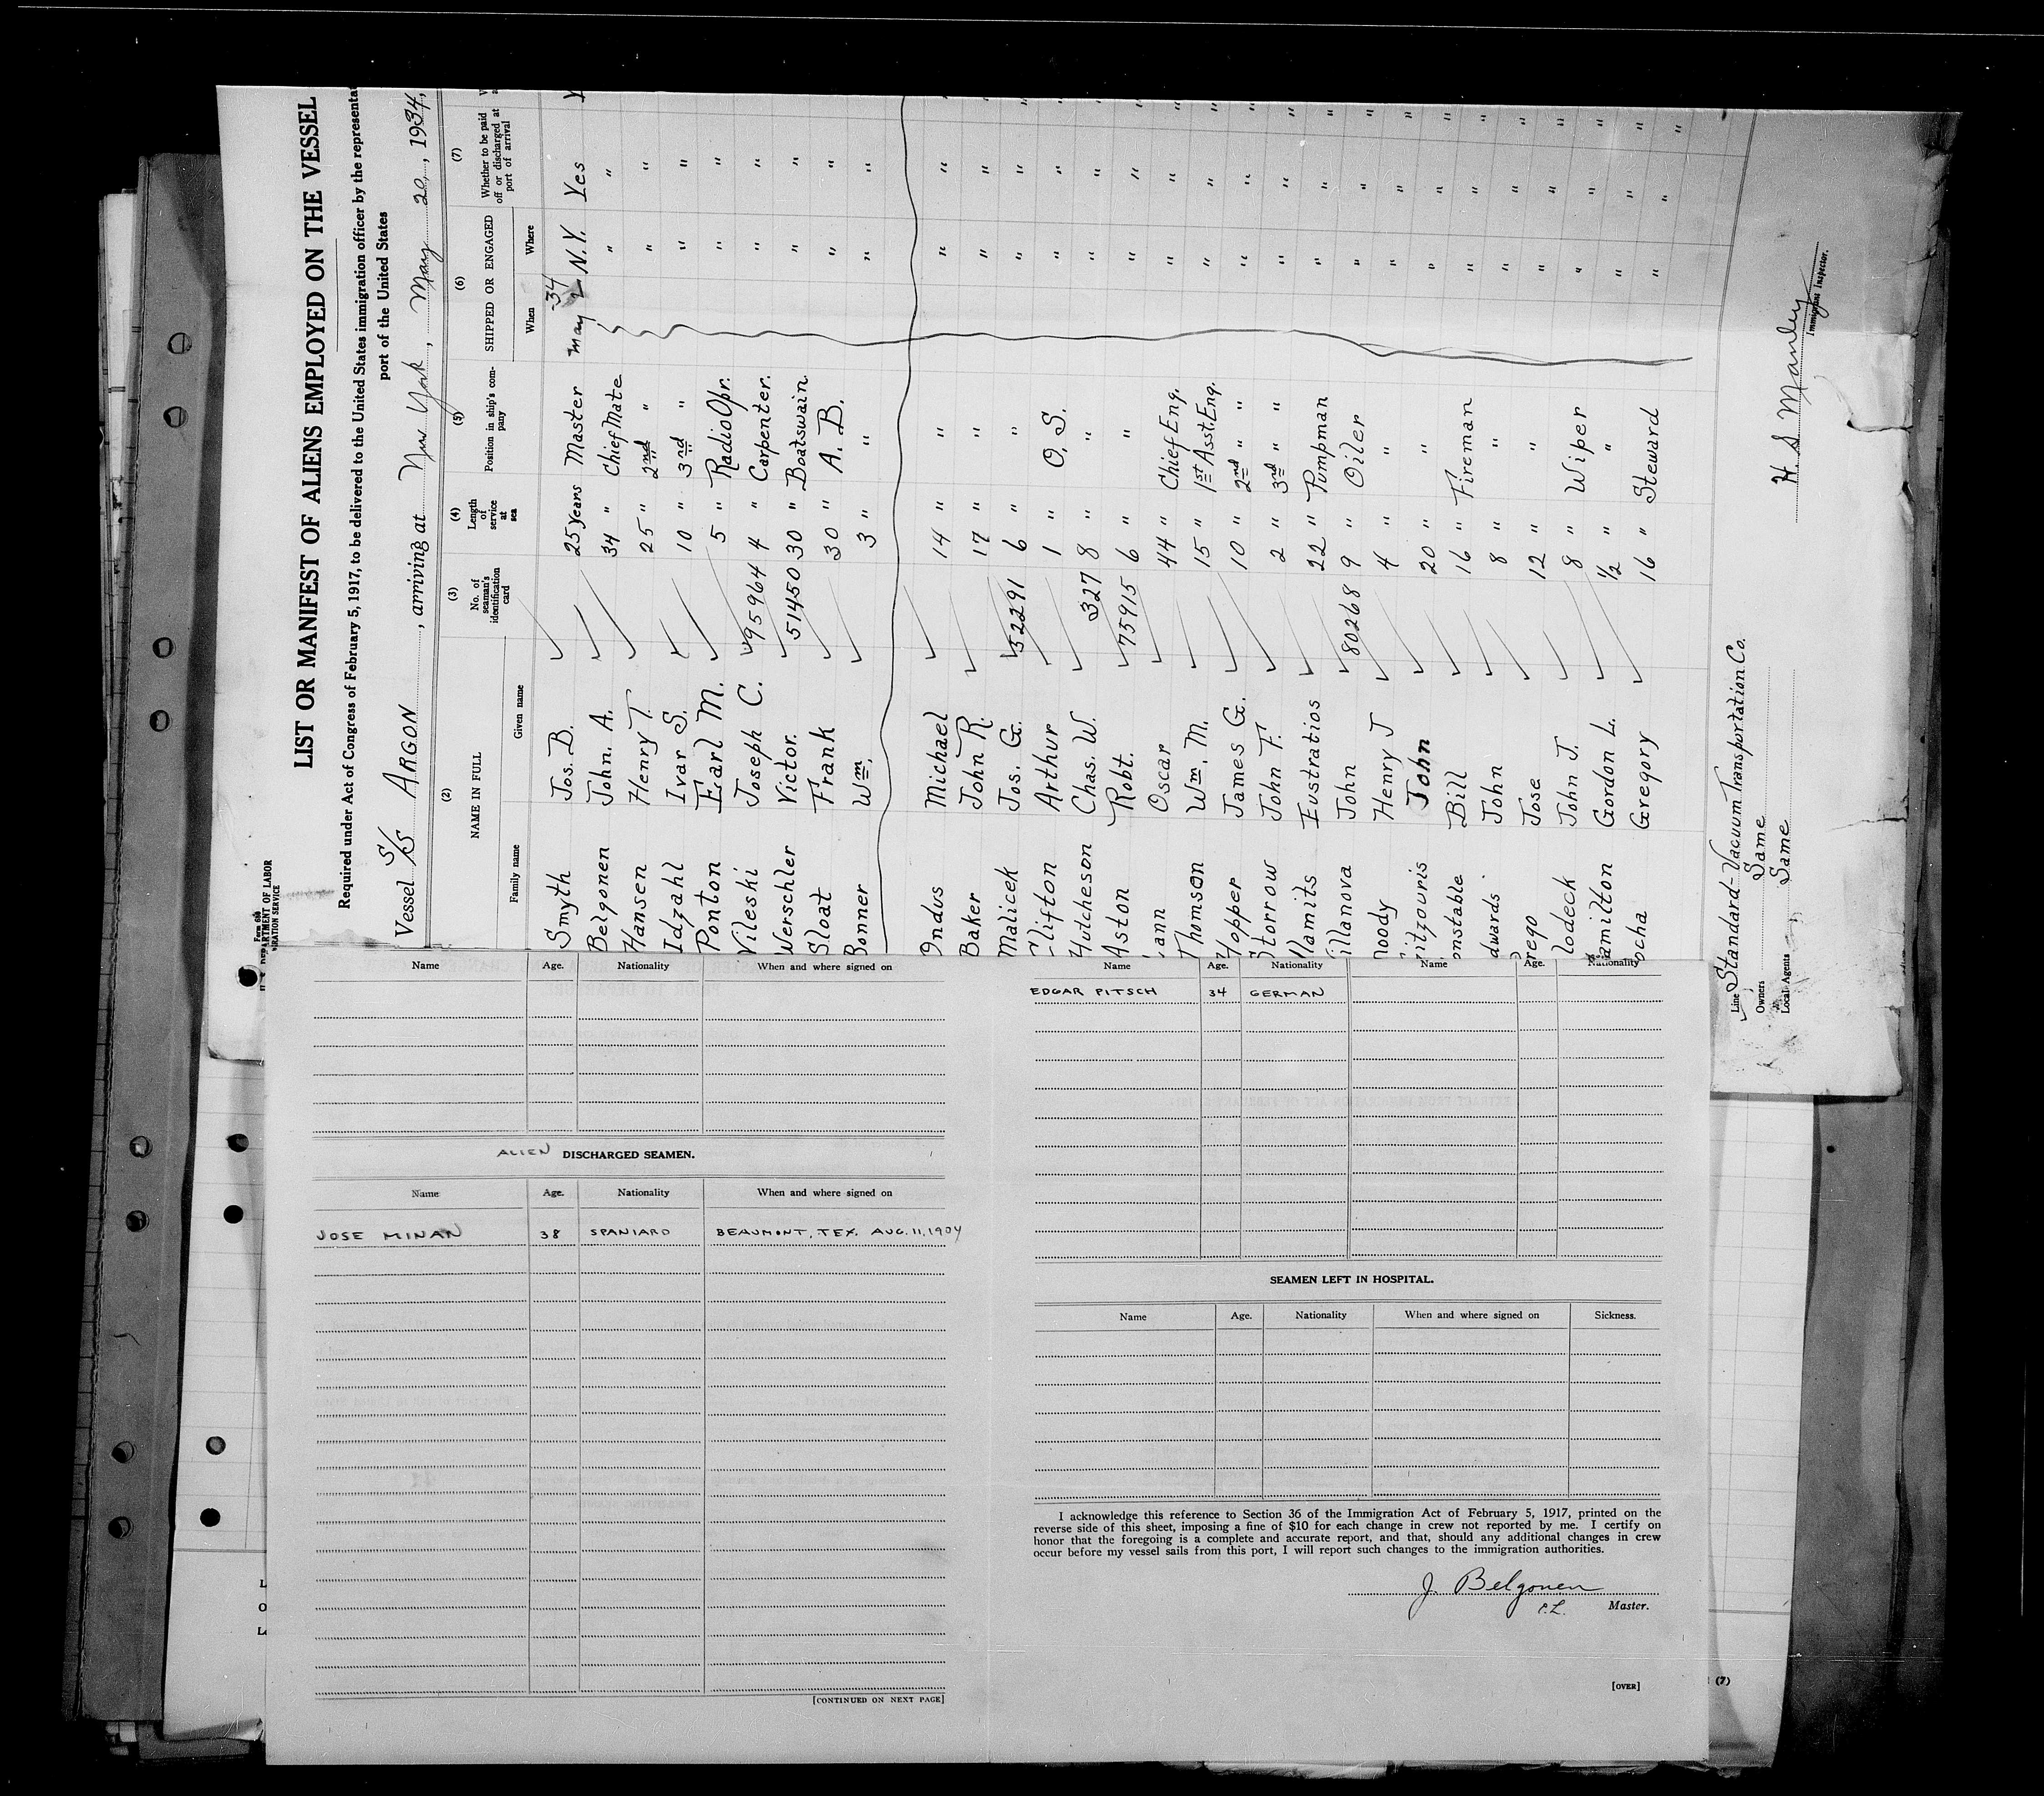 Form 689
U. S. DEPARTMENT OF LABOR
IMMIGRATION SERVICE
LIST OR MANIFEST OF ALIENS EMPLOYED ON THE VESSEL
Required under Act of Congress of February 5, 1917, to be delivered to the United States immigration officer by the representa
port of the United States
Vessel S/S ARGON, arriving at New York, May 20, 1934,
(2) (3) (4) (5) (6) (7)
NAME IN FULL No. of seaman's identification card Length of service at sea Position in ship's company SHIPPED OR ENGAGED Whether to be paid off or discharged at port of arrival
Family name Given name When Where
Smyth Jos. B. 25 years Master May 2 34 N.Y. Yes
Belgonen John. A. 34 " Chief Mate " "
Hansen Henry T. 25 " 2nd " " "
Idzahl Ivar S. 10 " 3rd " " "
Ponton Earl M. 5 " Radio Opr. " "
Vileski Joseph C. 95964 4 " Carpenter. " "
Werschler Victor. 51450 30 " Boatswain. " "
Sloat Frank 30 " A. B. " "
Bonner Wm. 3 " " " "
Indus Michael 14 " " " "
Baker John R. 17 " " " "
Malicek Jos. G. 52291 6 " " " "
Clifton Arthur 1 " O. S. " "
Hutcheson Chas. W. 327 8 " " " "
Aston Robt. 75915 6 " " " "
ann Oscar 44 " Chief Eng. " "
Thomson Wm. M. 15 " 1st Asst. Eng. " "
Hopper James G. 10 " 2nd " " " "
Storrow John F. 2 " 3rd " " " "
llamits Eustratios 22 " Pumpman " "
illanova John 80268 9 " Oiler " "
oody Henry J 4 " " " "
itzouris John 20 " " " "
onstable Bill 16 " Fireman " "
dwards John 8 " " " "
rego Jose 12 " " " "
lodeck John J. 8 " Wiper " "
amilton Gordon L. 1/2 " " " "
ocha Gregory 16 " Steward " "
Line Standard-Vacuum Transportation Co.
Owners Same
Local Agents Same
H. S Manley
Immigrant Inspector.
Name Age. Nationality When and where signed on
ALIEN DISCHARGED SEAMEN.
Name Age. Nationality When and where signed on
JOSE MINAN 38 SPANIARD BEAUMONT, TEX. AUG. 11, 1904
[CONTINUED ON NEXT PAGE]
Name Age. Nationality Name Age. Nationality
EDGAR PITSCH 34 GERMAN
SEAMEN LEFT IN HOSPITAL.
Name Age. Nationality When and where signed on Sickness.
I acknowledge this reference to Section 36 of the Immigration Act of February 5, 1917, printed on the
reverse side of this sheet, imposing a fine of $10 for each change in crew not reported by me. I certify on
honor that the foregoing is a complete and accurate report, and that, should any additional changes in crew
occur before my vessel sails from this port, I will report such changes to the immigration authorities.
J. Belgonen
Master.
[OVER]
(7)